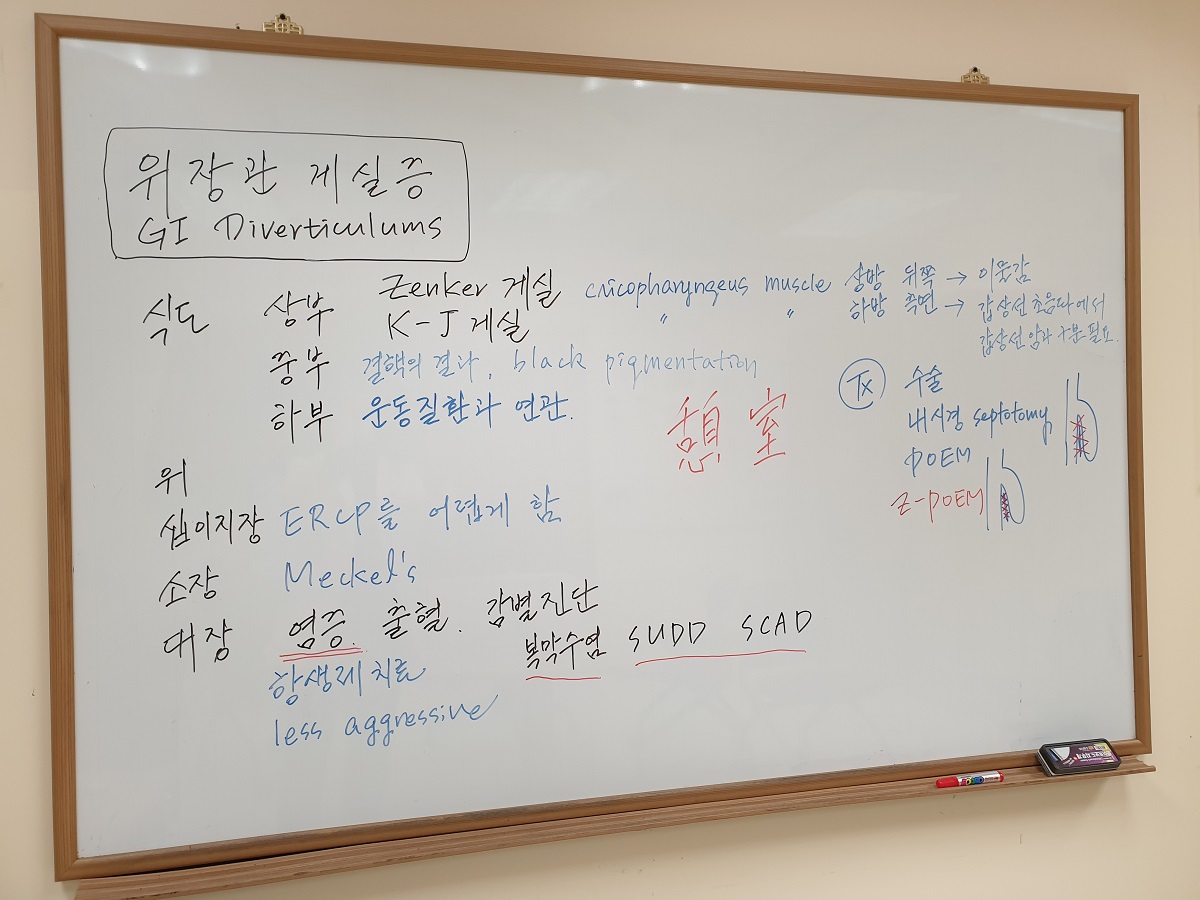 위장관 게실증
GI Diverticulums
식도 상부 Zenker 게실 cricopharyngeus muscle 상방 뒤쪽 → 이물감
K-J 게실 〃 〃 하방 측면 → 갑상선 초음파에서
갑상선 암과 구분 필요.
중부 결핵의 결과, black pigmentation
하부 운동질환과 연관.
憩室
Tx 수술
내시경 septotomy
POEM
Z-POEM
위
십이지장 ERCP를 어렵게 함
소장 Meckel's
대장 염증. 출혈. 감별진단
복막수염 SUDD SCAD
항생제 치료
less aggressive